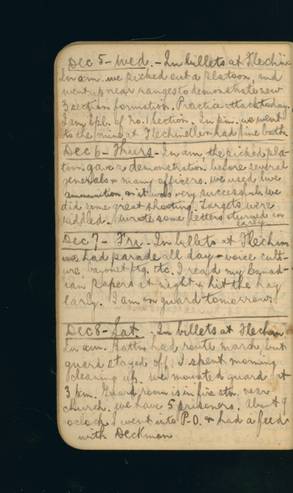 Dec 5 - Wed. - In billets at Flechin
In am. we picked out a platoon, and
went up near ranges to demonstrate new
3 section formation. Practice attack today.
I am Cpl. of no. 1 section. In p.m. we went
to the mine at Flechinelle & had fine bath
Dec 6 - Thurs - In am, the picked pla-
toon gave a demonstration before several
generals & many officers. We used live
ammunition & it was very successful. We
did some great shooting. Targets were
riddled. Wrote some letters & turned in
early.
Dec 7 - Fri. - In billets at Flechin
we had parade all day - voice cult-
ure, bayonet ftg. etc. I read my
papers at night & hit the hay
early. I am on guard tomorrow.
Dec 8 - Sat. - In billets at Flechin
In am. Battn had route march, but
guard stayed off. I spent morning
cleaning up. We mounted guard at
3 pm. Guard room is in fire stn. near
church. We have 5 prisoners. About 9
oclock I went into P.O. & had a feed
with Deckman